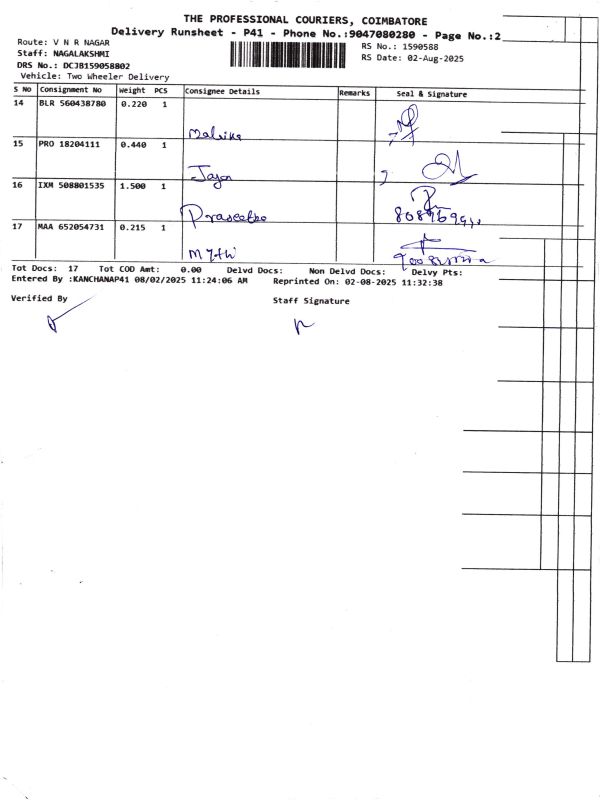 THE PROFESSIONAL COURIERS, COIMBATORE
Delivery Runsheet - P41 - Phone No.:9047080280 - Page No.:2
Route: V N R NAGAR
RS No.: 1590588
Staff: NAGALAKSHMI
RS Date: 02-Aug-2025
DRS No.: DCJB159058802
Vehicle: Two Wheeler Delivery
S No Consignment No Weight PCS Consignee Details Remarks Seal & Signature
14 BLR 560438780 0.220 1
Malvika
15 PRO 18204111 0.440 1
Jayon
16 IXM 508801535 1.500 1
Praseetha
17 MAA 652054731 0.215 1
Tot Docs: 17 Tot COD Amt: 0.00 Delvd Docs: Non Delvd Docs: Delvy Pts:
Entered By :KANCHANAP41 08/02/2025 11:24:06 AM Reprinted On: 02-08-2025 11:32:38
Verified By
Staff Signature